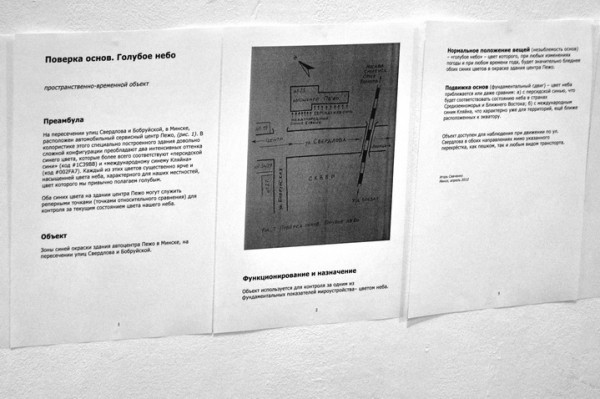 Поверка основ. Голубое небо
пространственно-временной объект
Преамбула
На пересечении улиц Свердлова и Бобруйской, в Минске,
расположен автомобильный сервисный центр Пежо, (рис. 1). В
колористике этого специально построенного здания довольно
сложной конфигурации преобладают два интенсивных оттенка
синего цвета, которые более всего соответствуют «персидской
сини» (код #1C39BB) и «международному синему Кляйна»
(код #002FA7). Каждый из этих цветов существенно ярче и
насыщенней цвета неба, характерного для наших местностей,
цвет которого мы привычно полагаем голубым.
Оба синих цвета на здании центра Пежо могут служить
реперными точками (точками относительного сравнения) для
контроля за текущим состоянием цвета нашего неба.
Объект
Зоны синей окраски здания автоцентра Пежо в Минске, на
пересечении улиц Свердлова и Бобруйской.
1
ул. Свердлова
Функционирование и назначение
Объект используется для контроля за одним из
фундаментальных показателей мироустройства– цветом неба.
2
Нормальное положение вещей (незыблемость основ)
– «голубое небо» – цвет которого, при любых изменениях
погоды и при любом времени года, будет значительно бледнее
обоих синих цветов в окраске здания центра Пежо.
Подвижка основ (фундаментальный сдвиг) – цвет неба
приближается или даже сравним: а) с персидской синью, что
будет соответствовать состоянию неба в странах
Средиземноморья и Ближнего Востока; б) с международным
синим Кляйна, что характерно уже для территорий, ещё ближе
расположенных к экватору.
Объект доступен для наблюдения при движении по ул.
Свердлова в обоих направлениях мимо указанного
перекрёстка, как пешком, так и любым видом транспорта.
Игорь Савченко,
Минск, апрель 2012
3